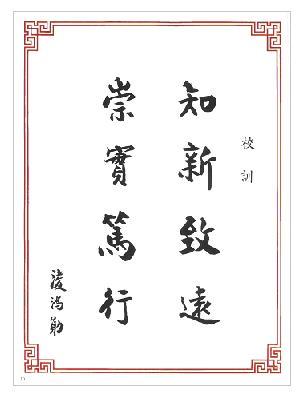 校訓
知新致遠
崇實篤行
凌鴻勛